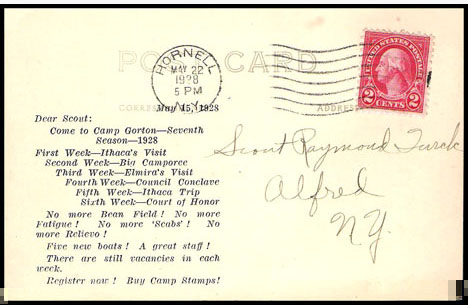 POST CARD
HORNELL
MAY 22
1928
5 PM
N.Y.
UNITED STATES POSTAGE
2 CENTS 2
CORRES
ADDRESS
May 15, 1928
Dear Scout:
Come to Camp Gorton—Seventh
Season—1928
First Week—Ithaca's Visit
Second Week—Big Camporee
Third Week—Elmira's Visit
Fourth Week—Council Conclave
Fifth Week—Ithaca Trip
Sixth Week—Court of Honor
No more Bean Field! No more
Fatigue! No more 'Scabs'! No
more Relievo!
Five new boats! A great staff!
There are still vacancies in each
week.
Register now! Buy Camp Stamps!
Scout Raymond Turck
Alfred
N.Y.